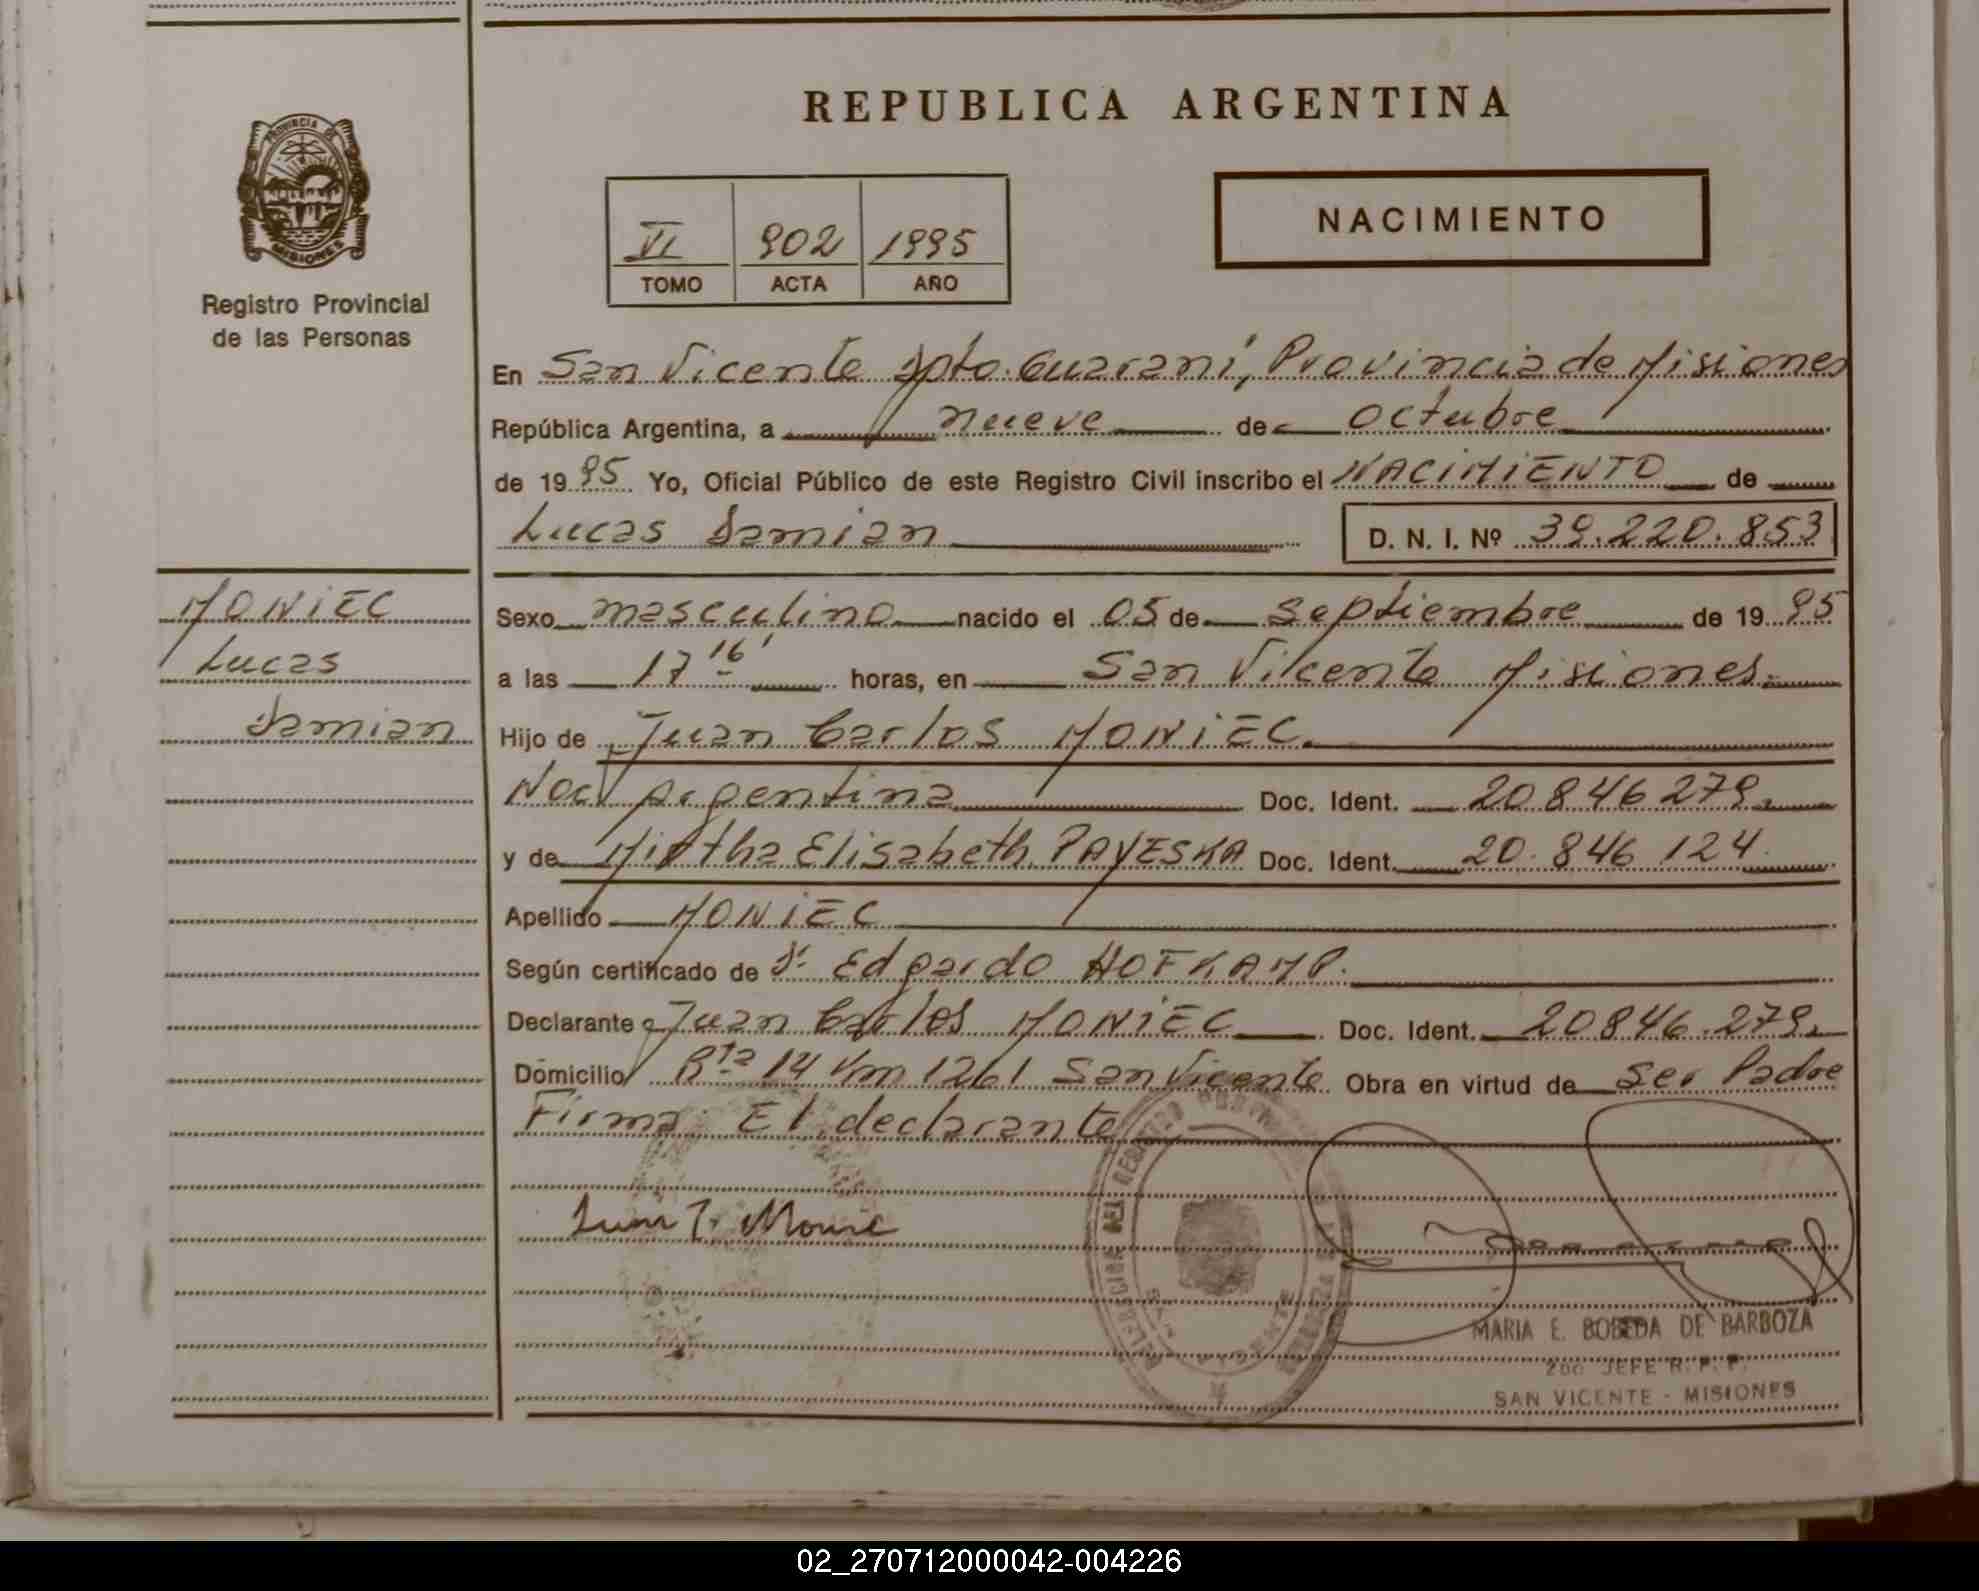 REPUBLICA ARGENTINA
PROVINCIA DE
MISIONES
Registro Provincial
de las Personas
VI 902 1995
TOMO ACTA AÑO
NACIMIENTO
En San Vicente Dpto. Guaraní, Provincia de Misiones
República Argentina, a nueve de octubre
de 1995 Yo, Oficial Público de este Registro Civil inscribo el NACIMIENTO de
Lucas Damian D. N. I. Nº 39.220.853
MONIEC
Lucas
Damian
Sexo masculino nacido el 05 de septiembre de 1995
a las 17 16' horas, en San Vicente Misiones.
Hijo de Juan Carlos MONIEC.
Nac. Argentina Doc. Ident. 20846279.
y de Mirtha Elisabeth PAYESKA Doc. Ident. 20.846 124
Apellido MONIEC
Según certificado de Dr. Edgardo HOFKAMP.
Declarante Juan Carlos MONIEC Doc. Ident. 20846.279.
Domicilio Rta 14 Km 1261 San Vicente Obra en virtud de ser Padre
Firma: El declarante
MARIA E. BOBEDA DE BARBOZA
2do JEFE R. P. P.
SAN VICENTE - MISIONES
02_270712000042-004226